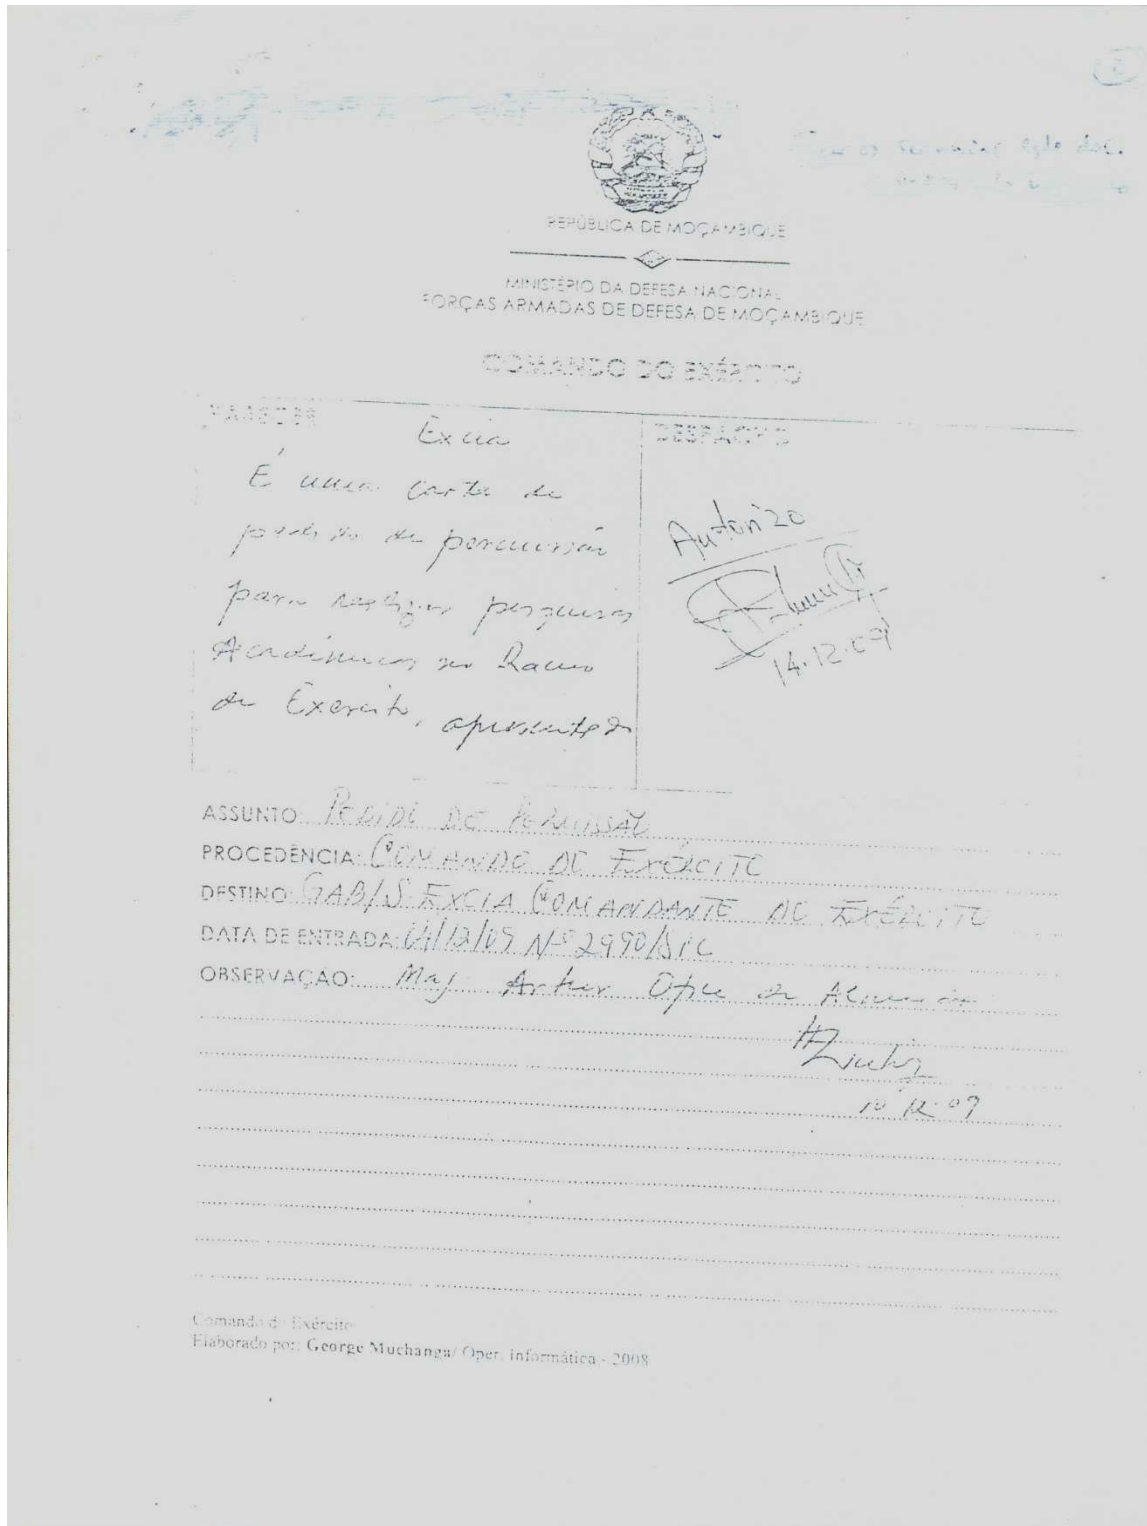 REPÚBLICA DE MOÇAMBIQUE
MINISTÉRIO DA DEFESA NACIONAL
FORÇAS ARMADAS DE DEFESA DE MOÇAMBIQUE
COMANDO DO EXÉRCITO
Excia
É uma carta de
pedido de permissão
para realizar pesquisas
Académicas no Ramo
de Exercito, apresentado
DESPACHO
Autorizo
14.12.09
ASSUNTO: PEDIDO DE PERMISSÃO
PROCEDÊNCIA: COMANDO DO EXÉRCITO
DESTINO: GAB/S. EXCIA COMANDANTE DO EXÉRCITO
DATA DE ENTRADA: 04/12/09 Nº 2990/SIC
OBSERVAÇÃO: Maj Artur
10 12 09
Comando do Exército
Elaborado por: George Muchanga/ Oper. Informática - 2008